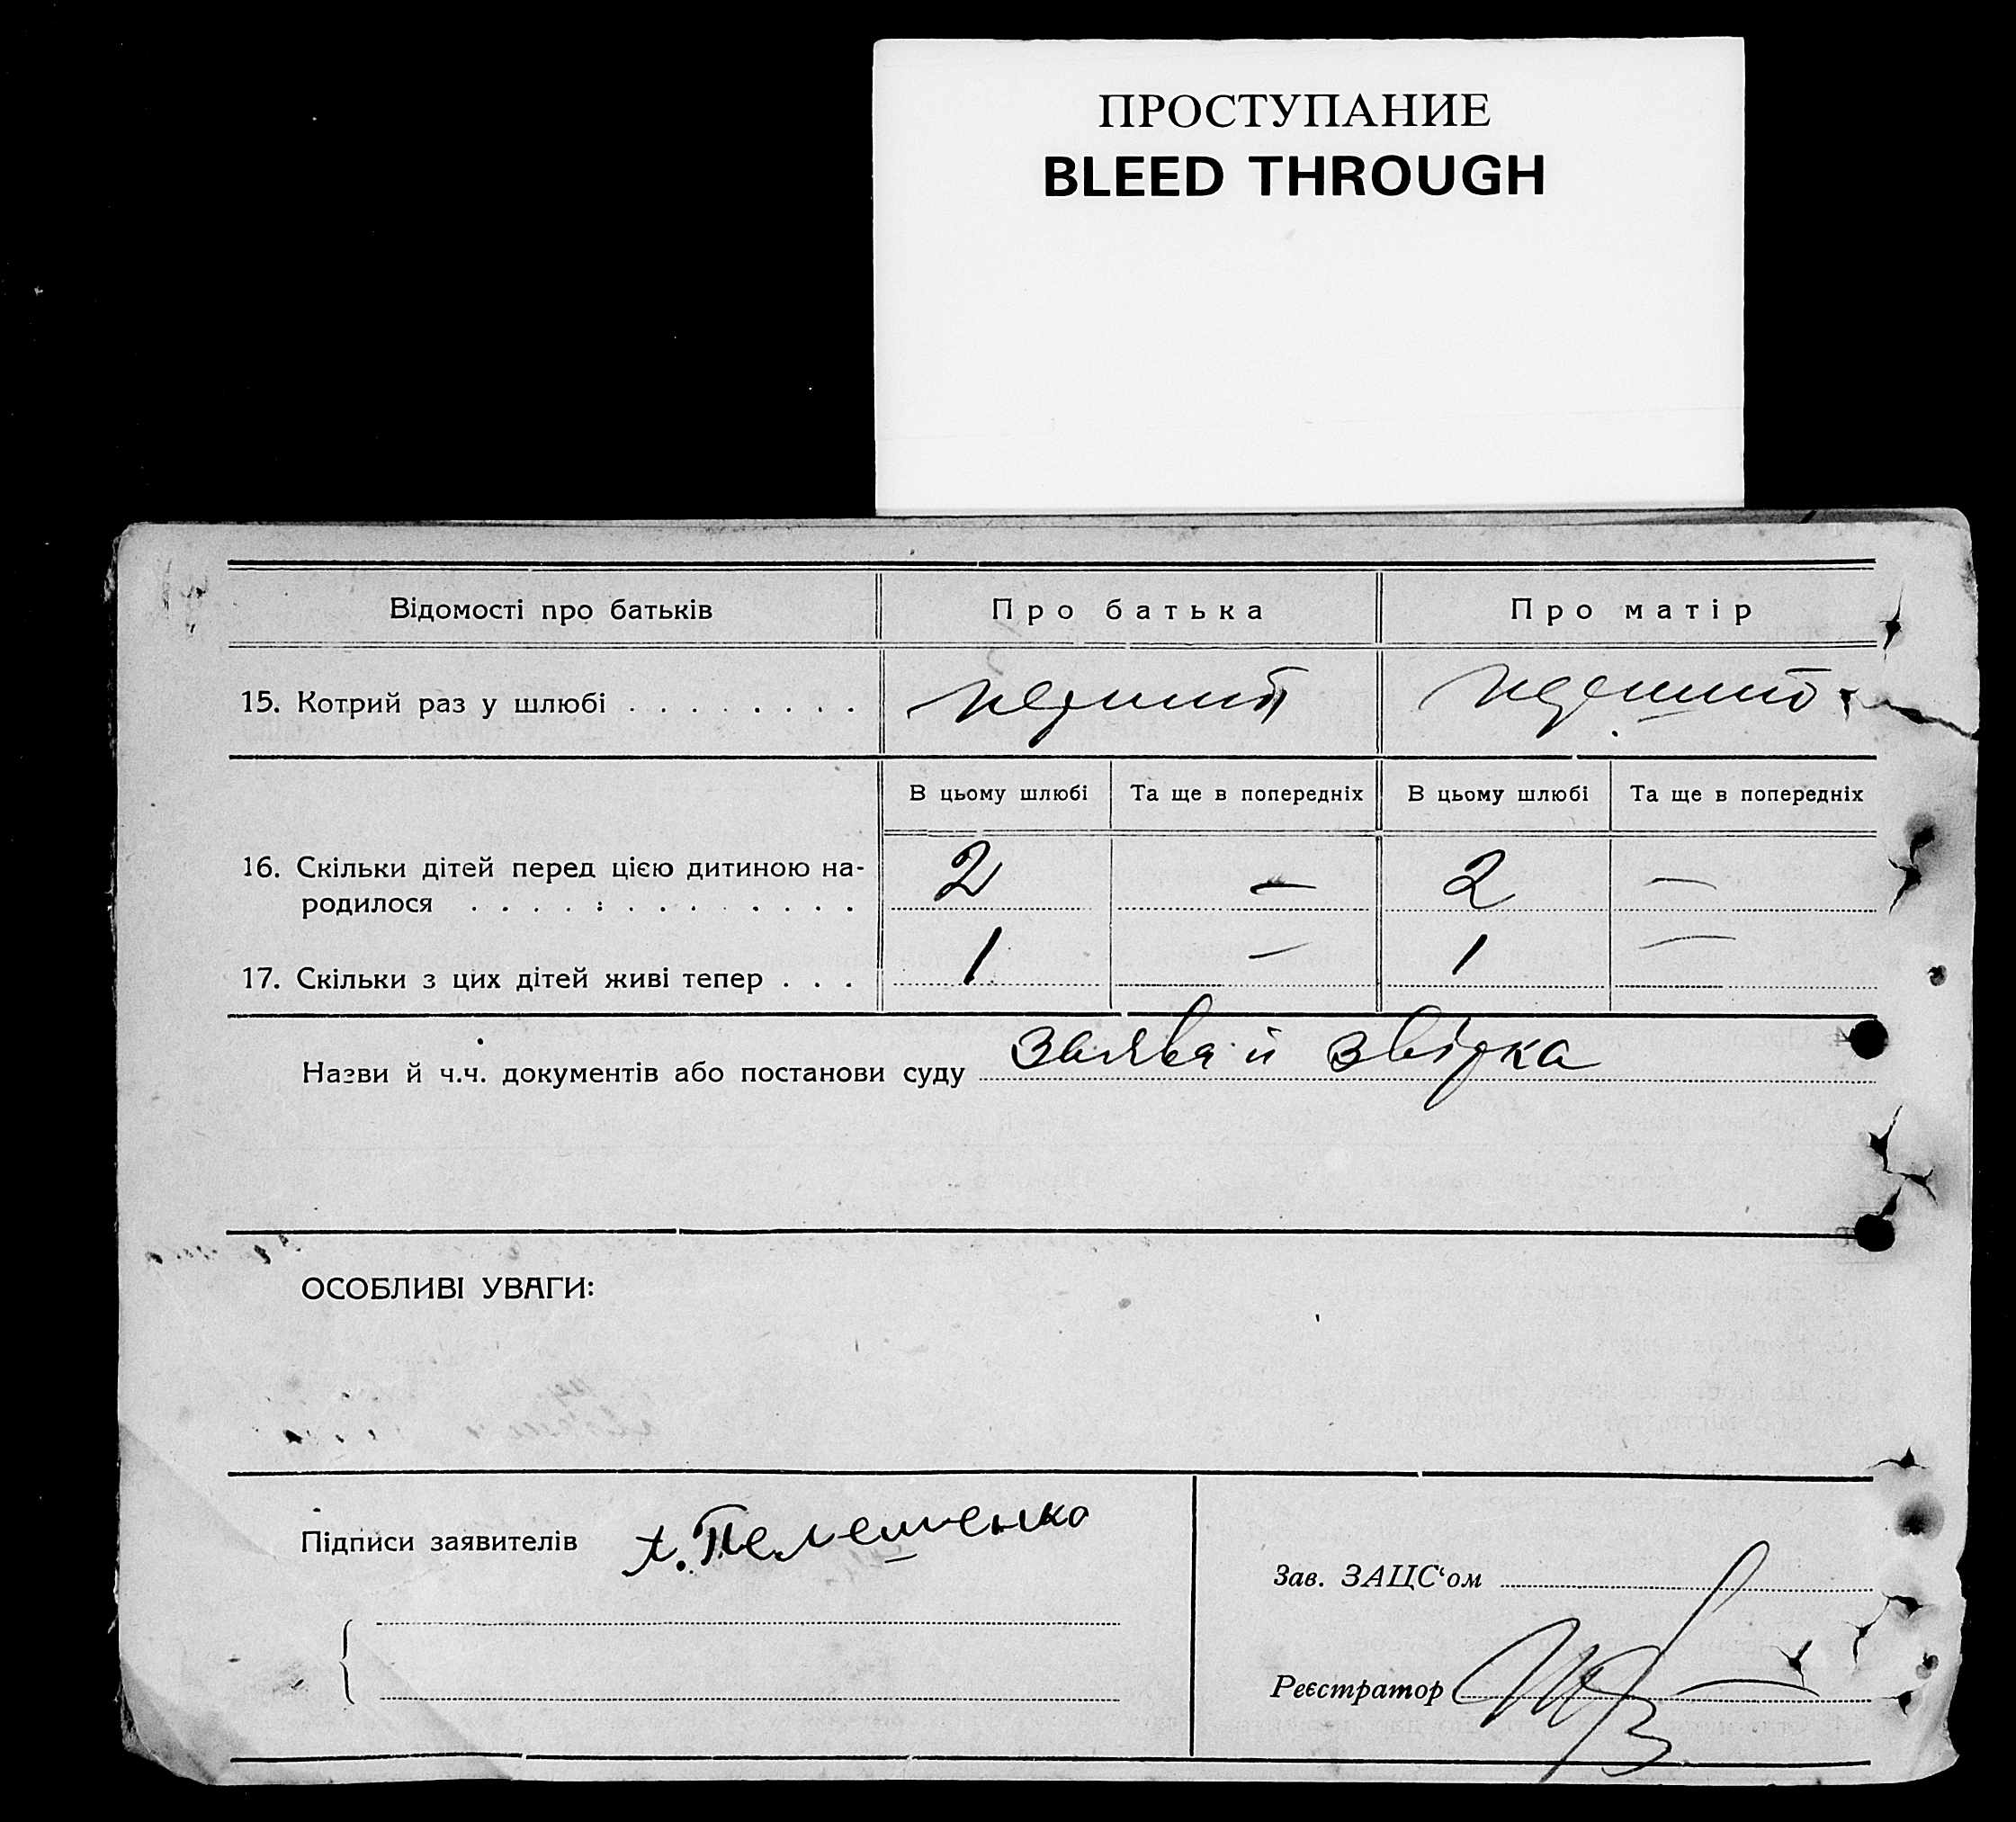 ПРОСТУПАНИЕ
BLEED THROUGH
Відомості про батьків Про батька Про матір
15. Котрий раз у шлюбі . . . . . . . . перший перший
В цьому шлюбі Та ще в попередніх В цьому шлюбі Та ще в попередніх
16. Скільки дітей перед цією дитиною на-
родилося . . . . . . . . . . . . 2 — 2 —
17. Скільки з цих дітей живі тепер . . . 1 — 1 —
Назви й ч.ч. документів або постанови суду заява й звірка
ОСОБЛИВІ УВАГИ:
Підписи заявителів
Зав. ЗАЦС‘ом
Реєстратор